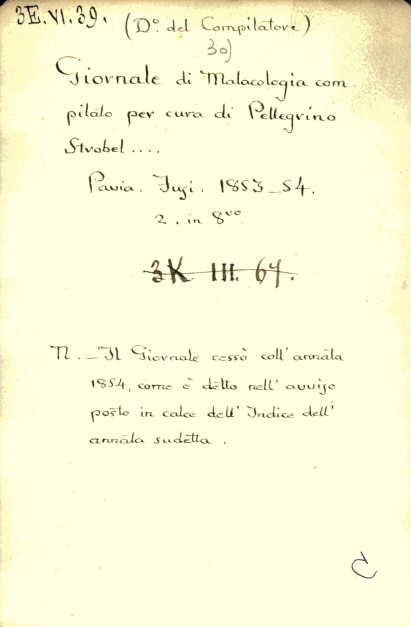 3E.VI.39. (Dº. del Compilatore)
30)
Giornale di Malacologia com-
pilato per cura di Pellegrino
Strobel....
Pavia. Fusi. 1853_54.
2. in 8vo
3K III. 67.
N. _ Il Giornale cessò coll'annata
1854, come è detto nell'avviso
posto in calce dell'Indice dell'
annata sudetta.
C